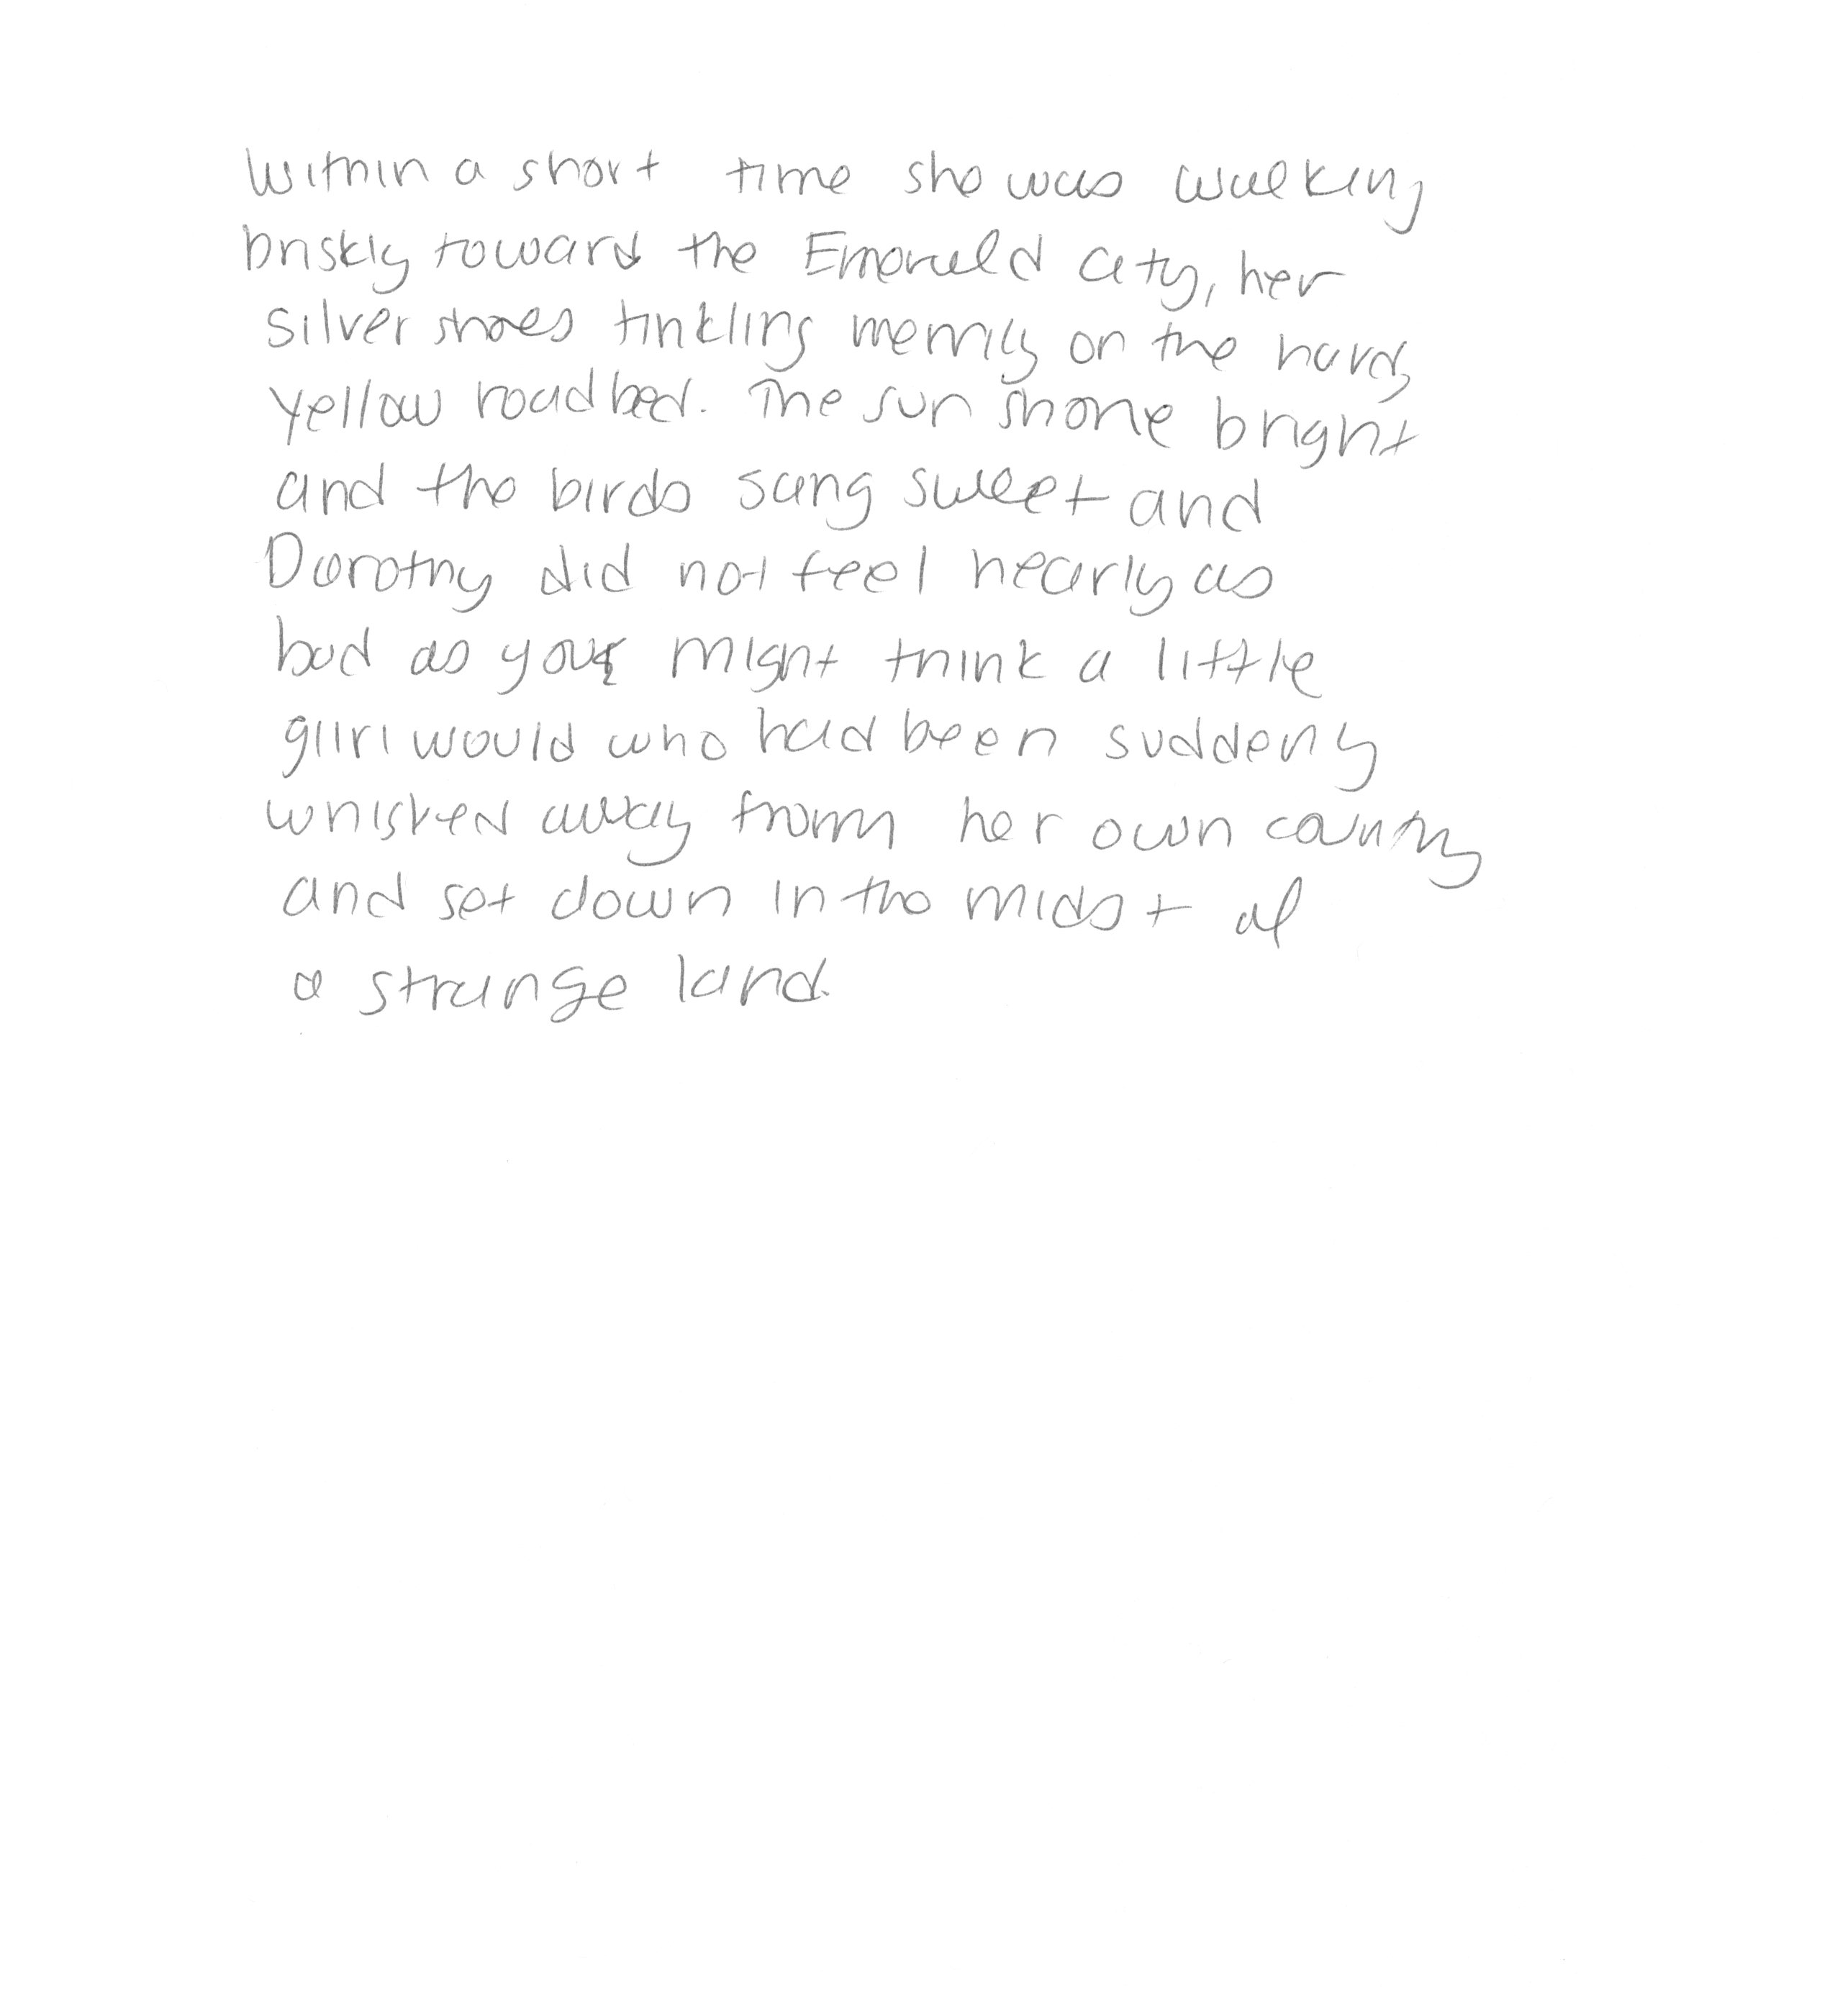 Within a short time she was walking
briskly toward the Emerald City, her
silver shoes tinkling merrily on the hard,
yellow roadbed. The sun shone bright
and the birds sang sweet and
Dorothy did not feel nearly as
bad as you might think a little
gilrl would who had been suddenly
whisked away from her own country
and set down in the midst of
a strange land.